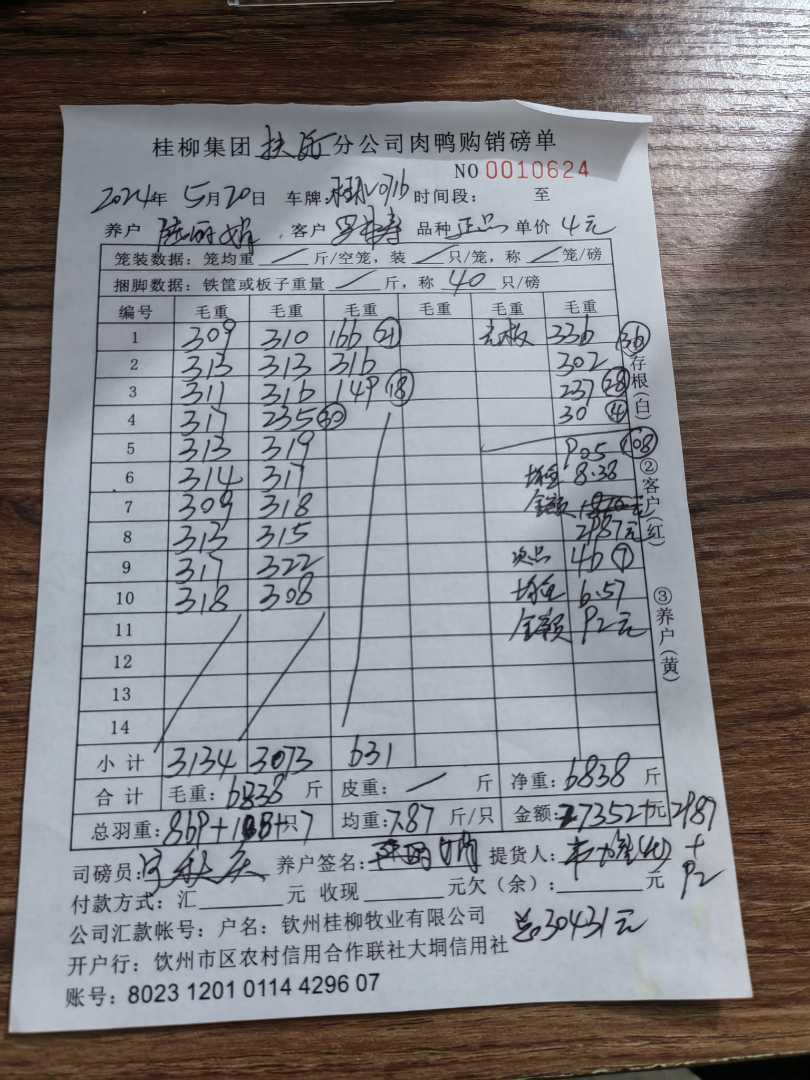 桂柳集团 分公司肉鸭购销磅单
NO 0010624
2024年 5月20日 车牌: 时间段: 至
养户 客户 品种 正品 单价 4元
笼装数据: 笼均重 / 斤/空笼, 装 / 只/笼, 称 / 笼/磅
捆脚数据: 铁筐或板子重量 / 斤, 称 40 只/磅
编号 毛重 毛重 毛重 毛重 毛重 毛重
1 309 310 166 (21) 336 (36)
2 313 313 316 302
3 311 316 149 (18) 237 (28)
4 317 235 (30) 30 (4)
5 313 319 905 (108)
6 314 317 均重 8.38
7 309 318 金额
8 313 315 2987元
9 317 322 次品 46 (7)
10 318 308 均重 6.57
11 金额 92元
12
13
14
小计 3134 3073 631
合计 毛重: 6838 斤 皮重: / 斤 净重: 6838 斤
总羽重: 869+108+7 只 均重: 7.87 斤/只 金额: 27352元+2987
+
92
司磅员: 养户签名: 提货人:
付款方式: 汇 元 收现 元欠(余): 元
公司汇款帐号: 户名: 钦州桂柳牧业有限公司
总30431元
开户行: 钦州市区农村信用合作联社大垌信用社
账号: 8023 1201 0114 4296 07
存根(白)
②客户(红)
③养户(黄)